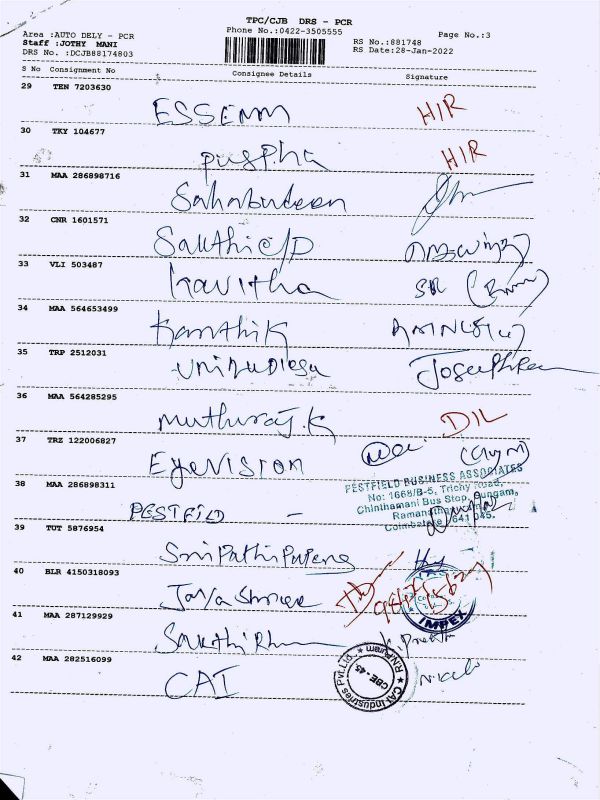 TPC/CJB DRS - PCR
Area :AUTO DELY - PCR
Phone No.:0422-3505555
Page No.:3
Staff :JOTHY MANI
RS No.:881748
DRS No. :DCJB88174803
RS Date:28-Jan-2022
S No Consignment No Consignee Details Signature
29 TEN 7203630
ESSENM HIR
30 TKY 104677
puspha HIR
31 MAA 286898716
Sahabudeen
32 CNR 1601571
Sakthi C/D
33 VLI 503487
kavitha SR
34 MAA 564653499
Karthik
35 TRP 2512031
Josephine
36 MAA 564285295
Muthuraj.K DIL
37 TRZ 122006827
EyeVISION
38 MAA 286898311
PESTFIELD BUSINESS ASSOCIATES
No: 1668/B-5, Trichy Road,
Chinthamani Bus Stop, Sungam,
Coimbatore 641 045.
PESTFILD -
39 TUT 5876954
40 BLR 4150318093
Jaya Shree
IMPEX
41 MAA 287129929
42 MAA 282516099
CAI
CAI Industries Pvt.Ltd. R.N.Puram CBE - 45